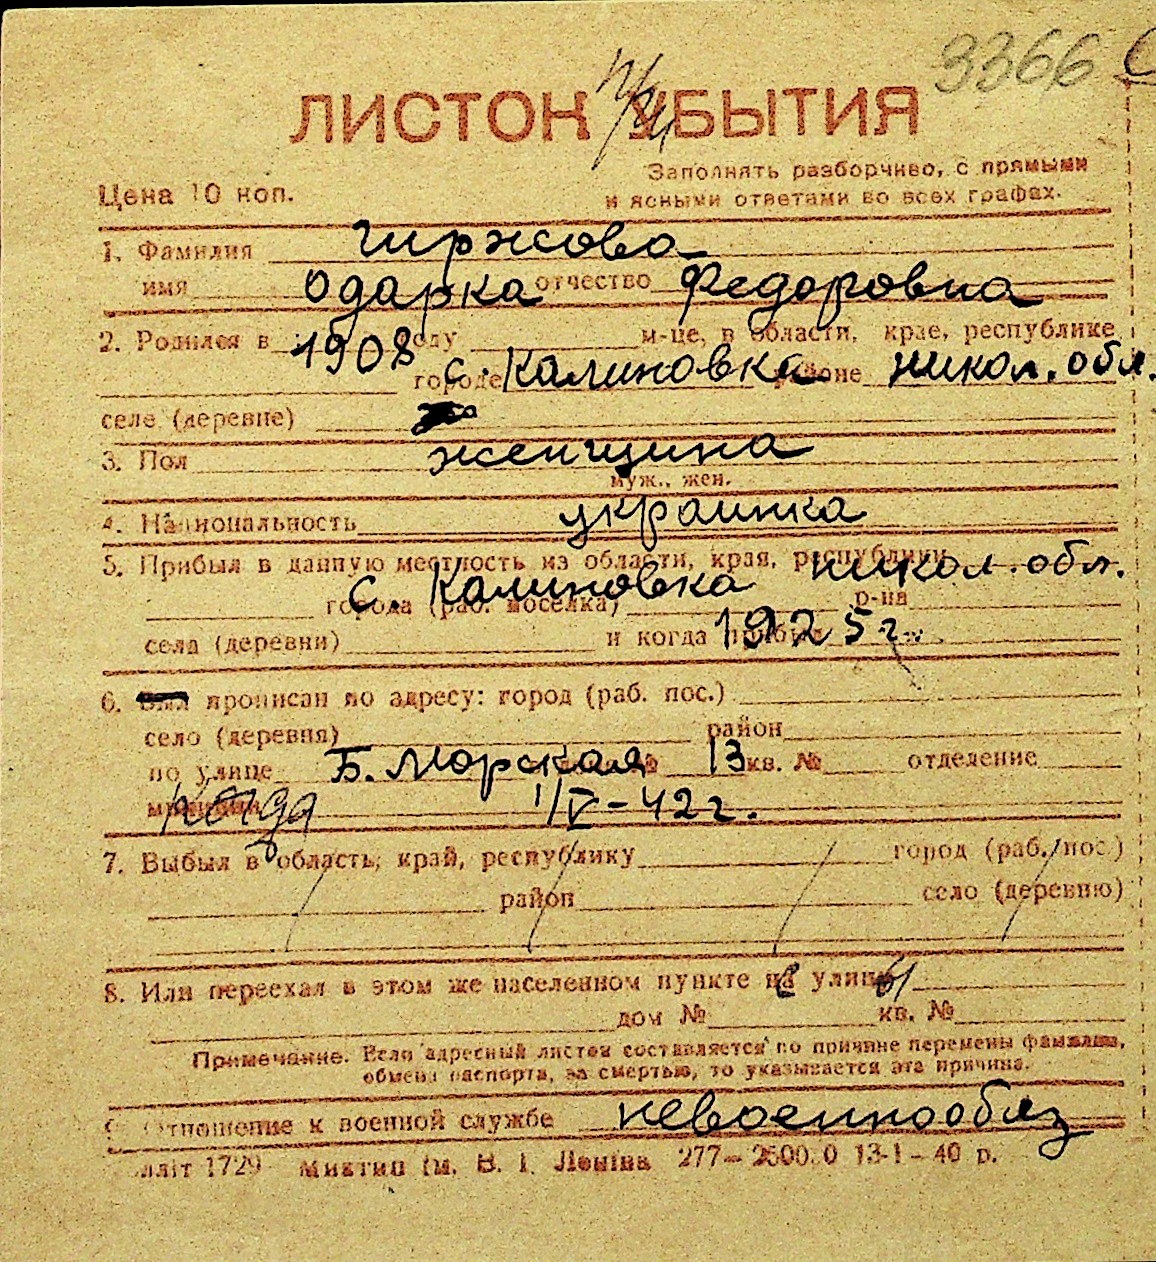 3366
ЛИСТОК УБЫТИЯ
Цена 10 коп.
Заполнять разборчиво, с прямыми
и ясными ответами во всех графах.
1. Фамилия Гиржова
имя Одарка отчество Федоровна
2. Родился в 1908 году м-це, в области, крае, республике
городе с. Калиновка районе Никол. обл.
селе (деревне)
3. Пол женщина
муж., жен.
4. Национальность украинка
5. Прибыл в данную местность из области, края, республики Никол. обл.
города (раб. поселка) с. Калиновка р-на
села (деревни) и когда прибыл 1925 г.
6. прописан по адресу: город (раб. пос.)
село (деревня) район
по улице Б. Морская № 13 кв. № отделение
когда 1/V-42 г.
7. Выбыл в область, край, республику город (раб. пос.)
район село (деревню)
8. Или переехал в этом же населенном пункте с улицы
дом № кв. №
Примечание. Если адресный листок составляется по причине перемены фамилии,
обмена паспорта, за смертью, то указывается эта причина.
9. Отношение к военной службе невоеннообяз
лліт 1729 Миктип ім. В. І. Леніна 277—2500.0 13-1-40 р.